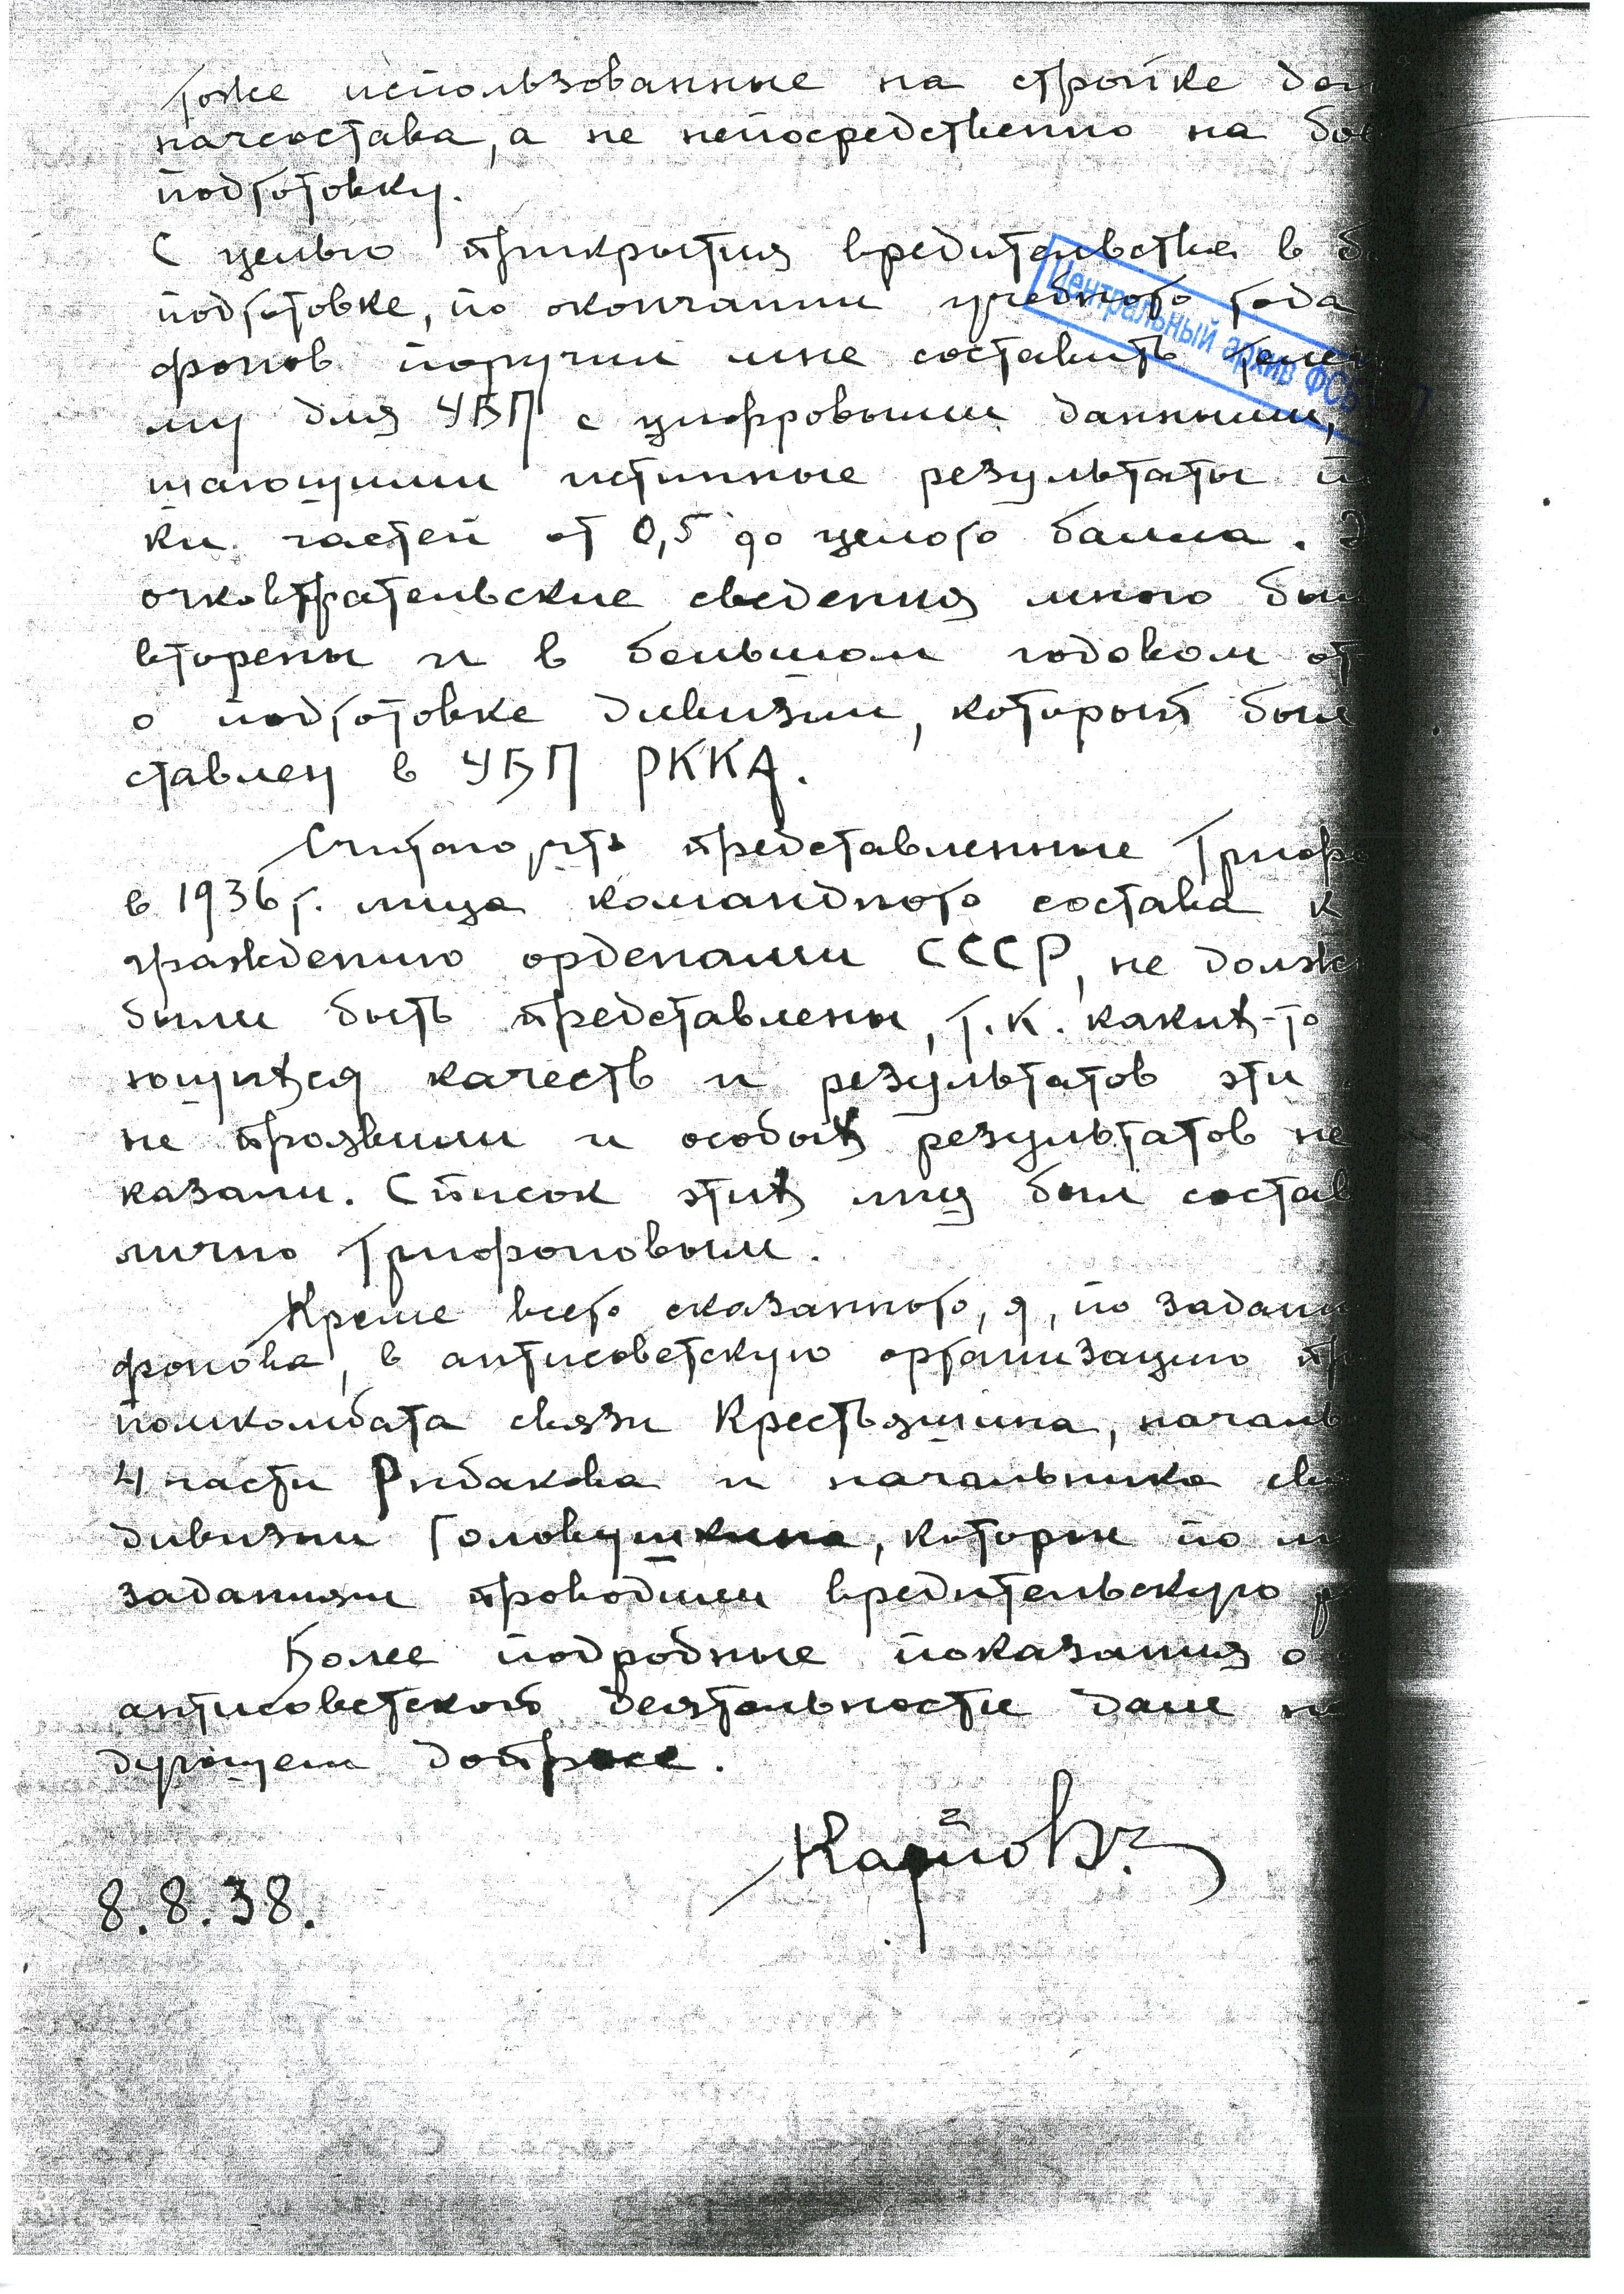 тоже использованные на стройке дом
начсостава, а не непосредственно на бое
подготовку.
С целью прикрытия вредительства в б
подготовке, по окончании учебного года
фонов поручил мне составить
му для УБП с цифровыми данными,
щающими истинные результаты п
ки частей от 0,5 до целого балла. Э
очковтирательские сведения мною был
вторены и в большом годовом от
о подготовке дивизии, который был
ставлен в УБП РККА.
Считаю, что представленные Трифо
в 1936 г. лица командного состава к
граждению орденами СССР, не долж
были быть представлены, т.к. каких-то
ющихся качеств и результатов эти
не проявили и особых результатов не
казали. Список этих лиц был состав
лично Трифоновым.
Кроме всего сказанного, я, по задани
фонова, в антисоветскую организацию
помкомбата связи Крестьянина, началь
4 части Рыбакова и начальника свя
дивизии Головушкина, которые по м
заданиям проводили вредительскую р
Более подробные показания о
антисоветской деятельности дам на
дующем допросе.
Карпов
8.8.38.
Центральный архив ФСБ